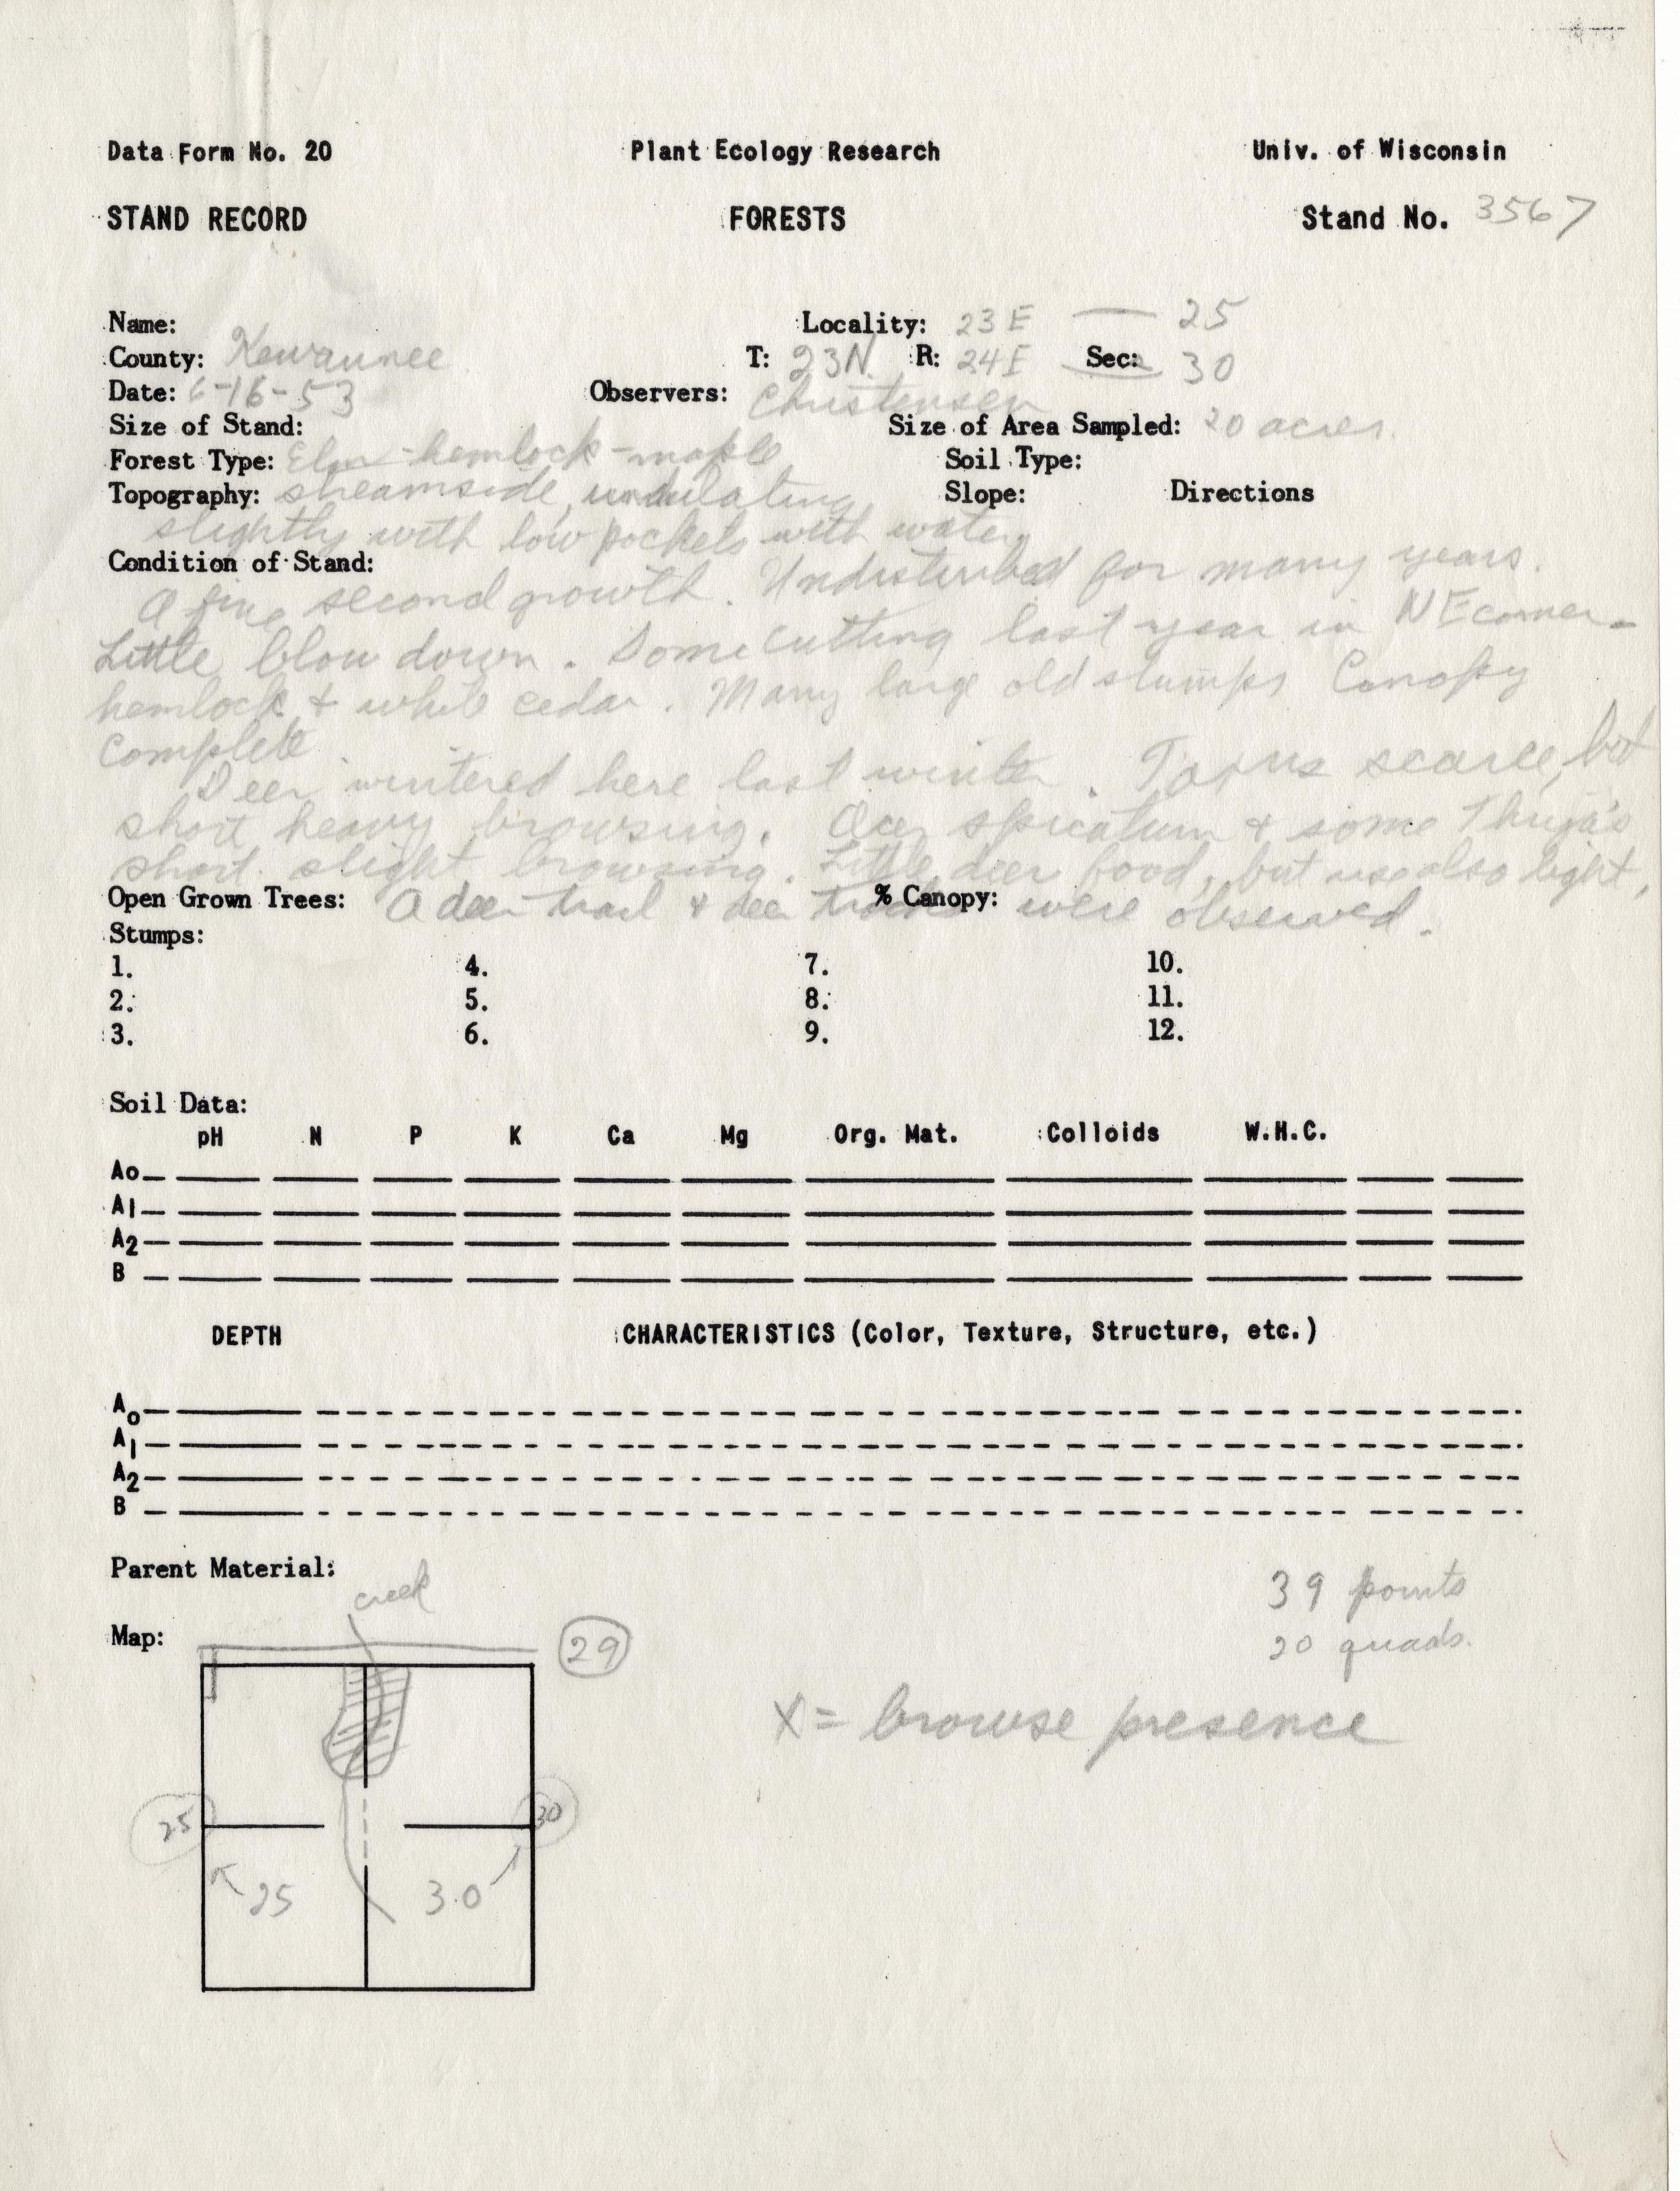 Data Form No. 20 Plant Ecology Research Univ. of Wisconsin
STAND RECORD FORESTS Stand No. 3567
Name: Locality: 23E — 25
County: Kewaunee T: 23N. R: 24E Sec: 30
Date: 6-16-53 Observers: Christensen
Size of Stand: Size of Area Sampled: 20 acres.
Forest Type: Elm-hemlock-maple Soil Type:
Topography: streamside, undulating Slope: Directions
slightly with low pockets with water.
Condition of Stand:
A fine second growth. Undisturbed for many years.
Little blow down. Some cutting last year in NE corner-
hemlock & white cedar. Many large old stumps Canopy
complete.
Deer wintered here last winter. Taxus scarce, but
short heavy browsing. Acer spicatum & some Thuja's
short. slight browsing. Little deer food, but use also light,
Open Grown Trees: A deer trail & deer tracks % Canopy: were observed.
Stumps:
1. 4. 7. 10.
2. 5. 8. 11.
3. 6. 9. 12.
Soil Data:
pH N P K Ca Mg Org. Mat. Colloids W.H.C.
Ao
A1
A2
B
DEPTH CHARACTERISTICS (Color, Texture, Structure, etc.)
Ao
A1
A2
B
Parent Material:
39 points
creek
Map: 29 20 quads.
X = browse presence
25 30
25 30